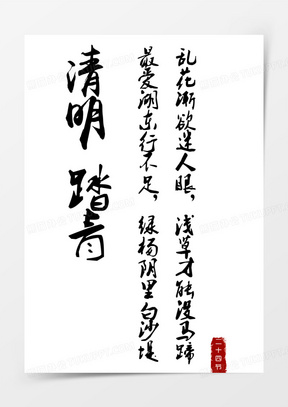 乱花渐欲迷人眼，浅草才能没马蹄
最爱湖东行不足，绿杨阴里白沙堤
清明 踏青
二十四节